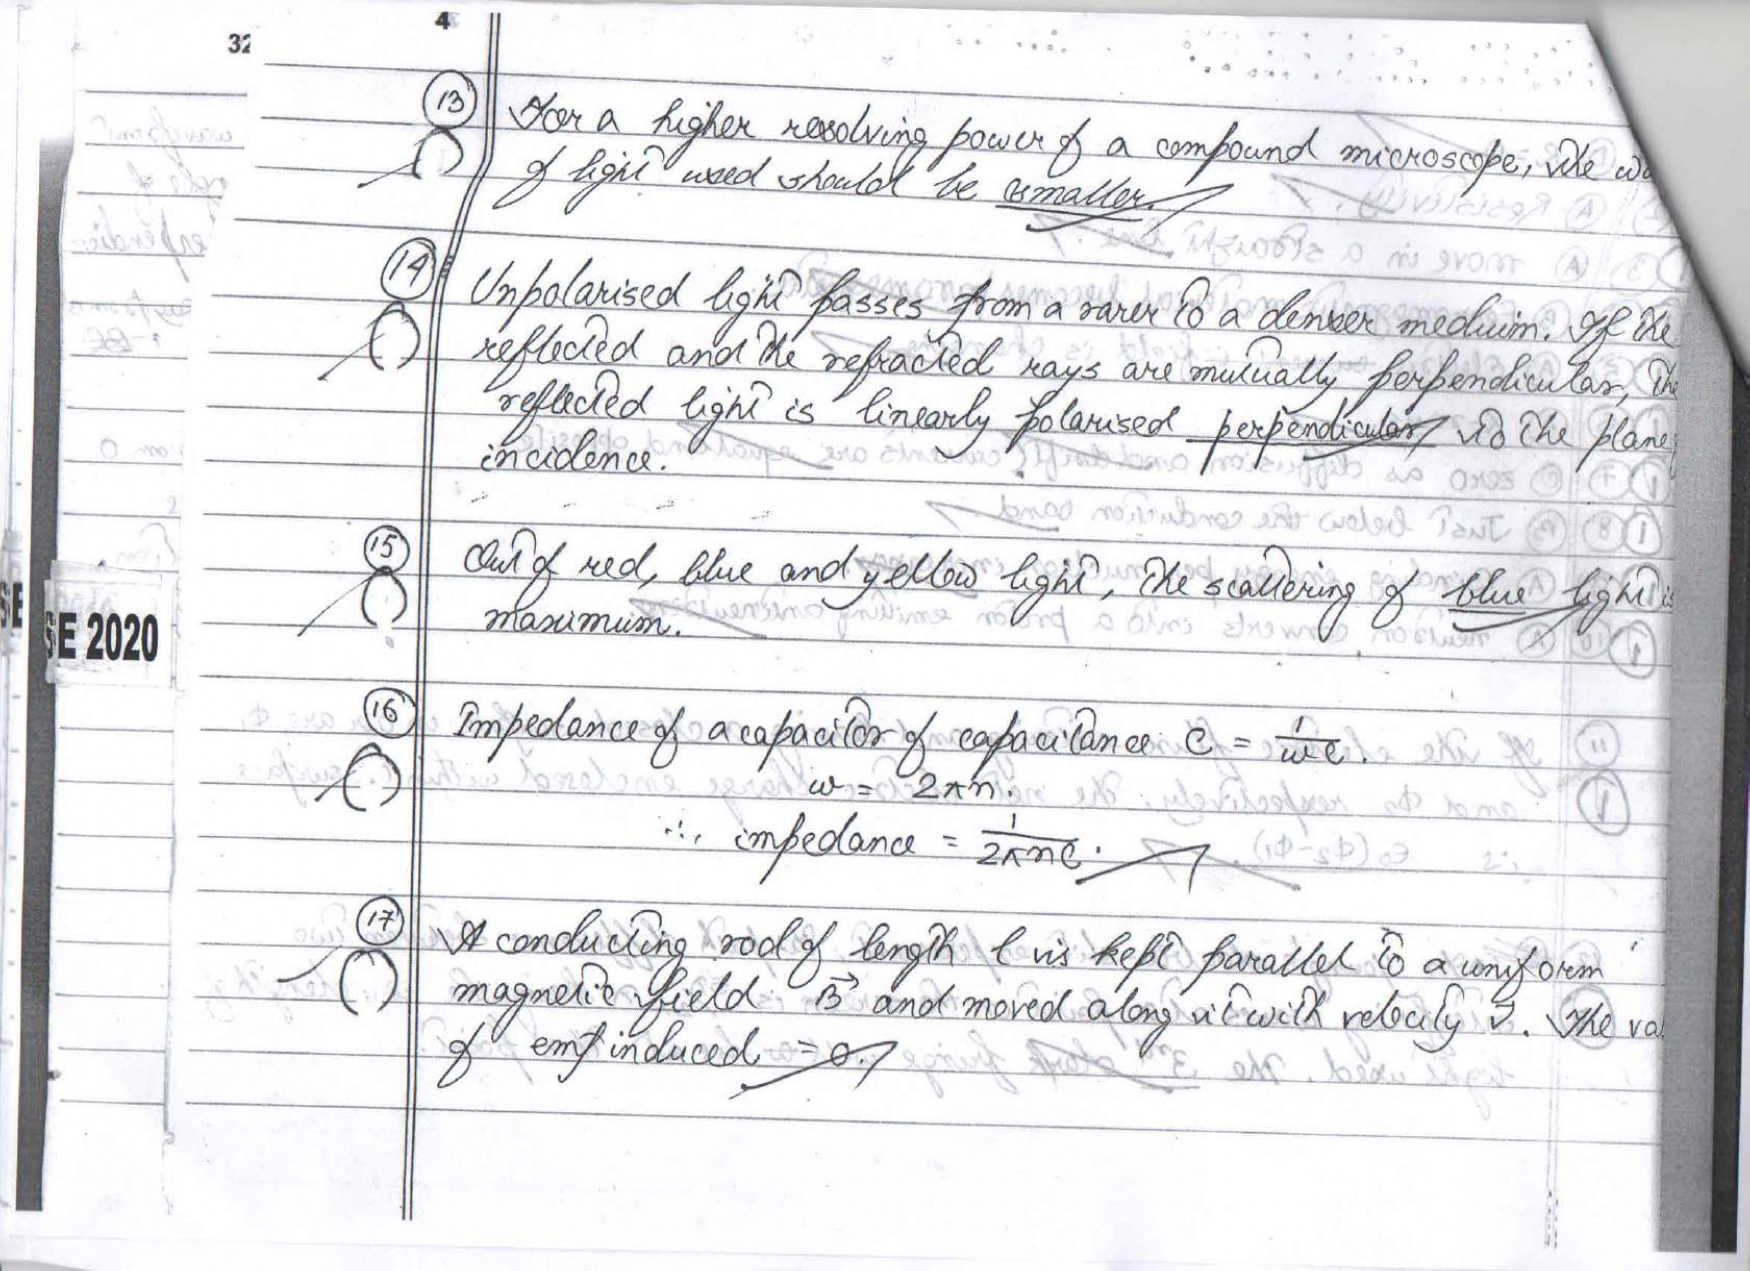 4
32
13 For a higher resolving power of a compound microscope, the
of light used should be smaller.
14 Unpolarised light passes from a rarer to a denser meduim. If the
reflected and the refracted rays are mutually perpendicular, the
reflected light is linearly polarised perpendicular to the plane
incidence.
15 Out of red, blue and yellow light, the scattering of blue light is
maximum.
SE
SE 2020
16 Impedance of a capacitor of capacitance C = 1/ωC.
ω = 2πn.
∴ impedance = 1/2πnC.
17 A conducting rod of length l is kept parallel to a uniform
magnetic field B⃗ and moved along it with velocity v⃗. The
of emf induced = 0.